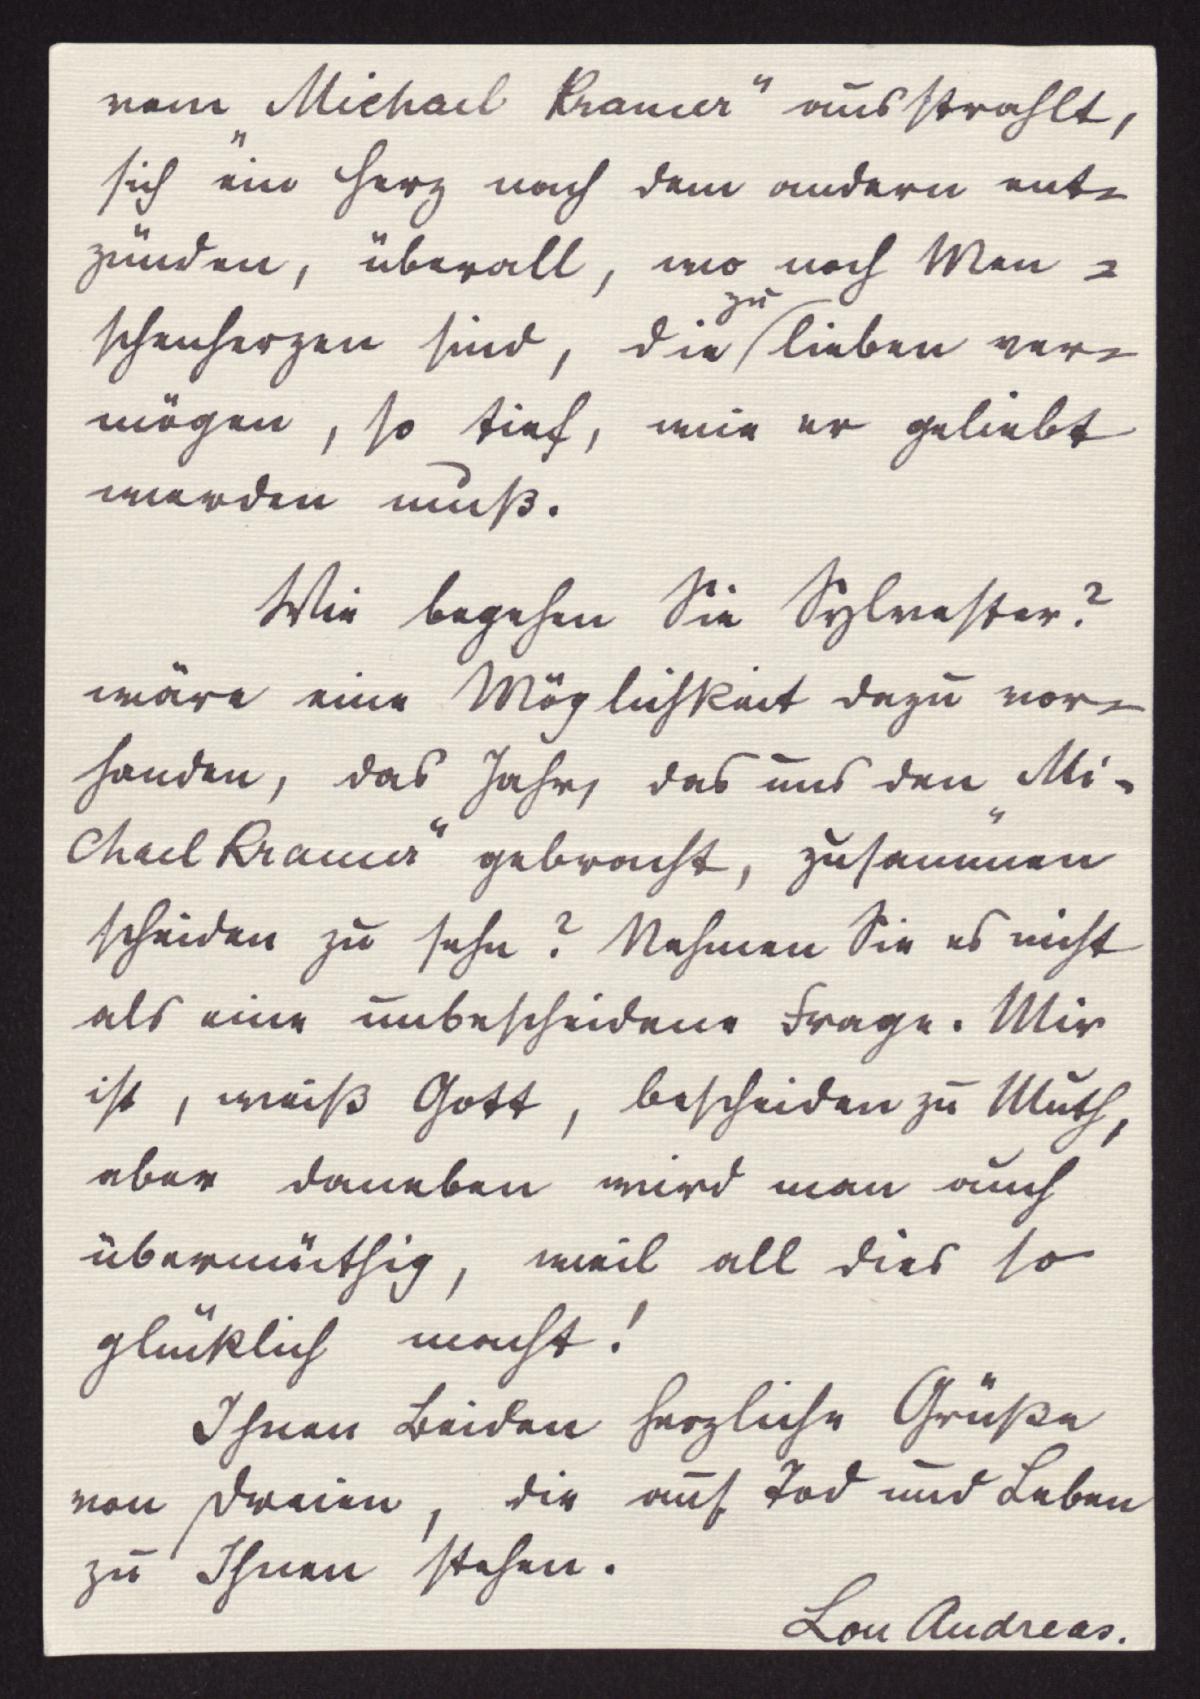 vom „Michael Kramer“ ausstrahlt,
sich ein Herz nach dem andern ent-
zünden, überall, wo noch Men-
schenherzen sind, die zu lieben ver-
mögen, so tief, wie er geliebt
werden muß.
Wie begehen Sie Sylvester?
wäre eine Möglichkeit dazu vor-
handen, das Jahr, das uns den „Mi-
chael Kramer“ gebracht, zusammen
scheiden zu sehn? Nehmen Sie es nicht
als eine unbescheidene Frage. Mir
ist, weiß Gott, bescheiden zu Muth,
aber daneben wird man auch
übermüthig, weil all dies so
glücklich macht!
Ihnen Beiden herzliche Grüße
von Dreien, die auf Tod und Leben
zu Ihnen stehen.
Lou Andreas.